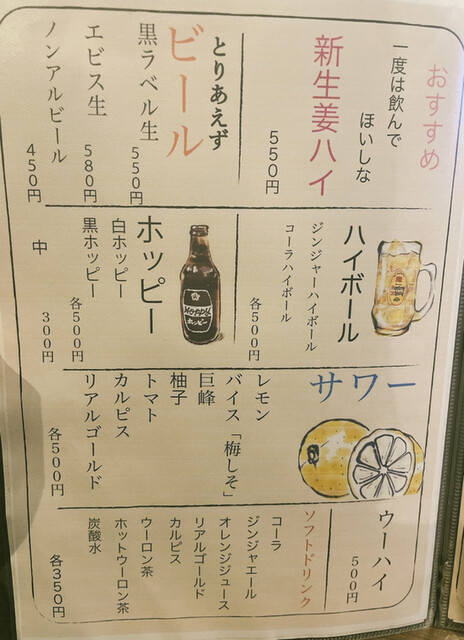 おすすめ
一度は飲んで
ほいしな
新生姜ハイ
550円
とりあえず
ビール
黒ラベル生
550円
エビス生
580円
ノンアルビール
450円
ハイボール
ジンジャーハイボール
コーラハイボール
各500円
ホッピー
ホッピー
白ホッピー
黒ホッピー
各500円
中
300円
サワー
レモン
バイス「梅しそ」
巨峰
柚子
トマト
カルピス
リアルゴールド
各500円
ウーハイ
500円
ソフトドリンク
コーラ
ジンジャエール
オレンジジュース
リアルゴールド
カルピス
ウーロン茶
ホットウーロン茶
炭酸水
各350円